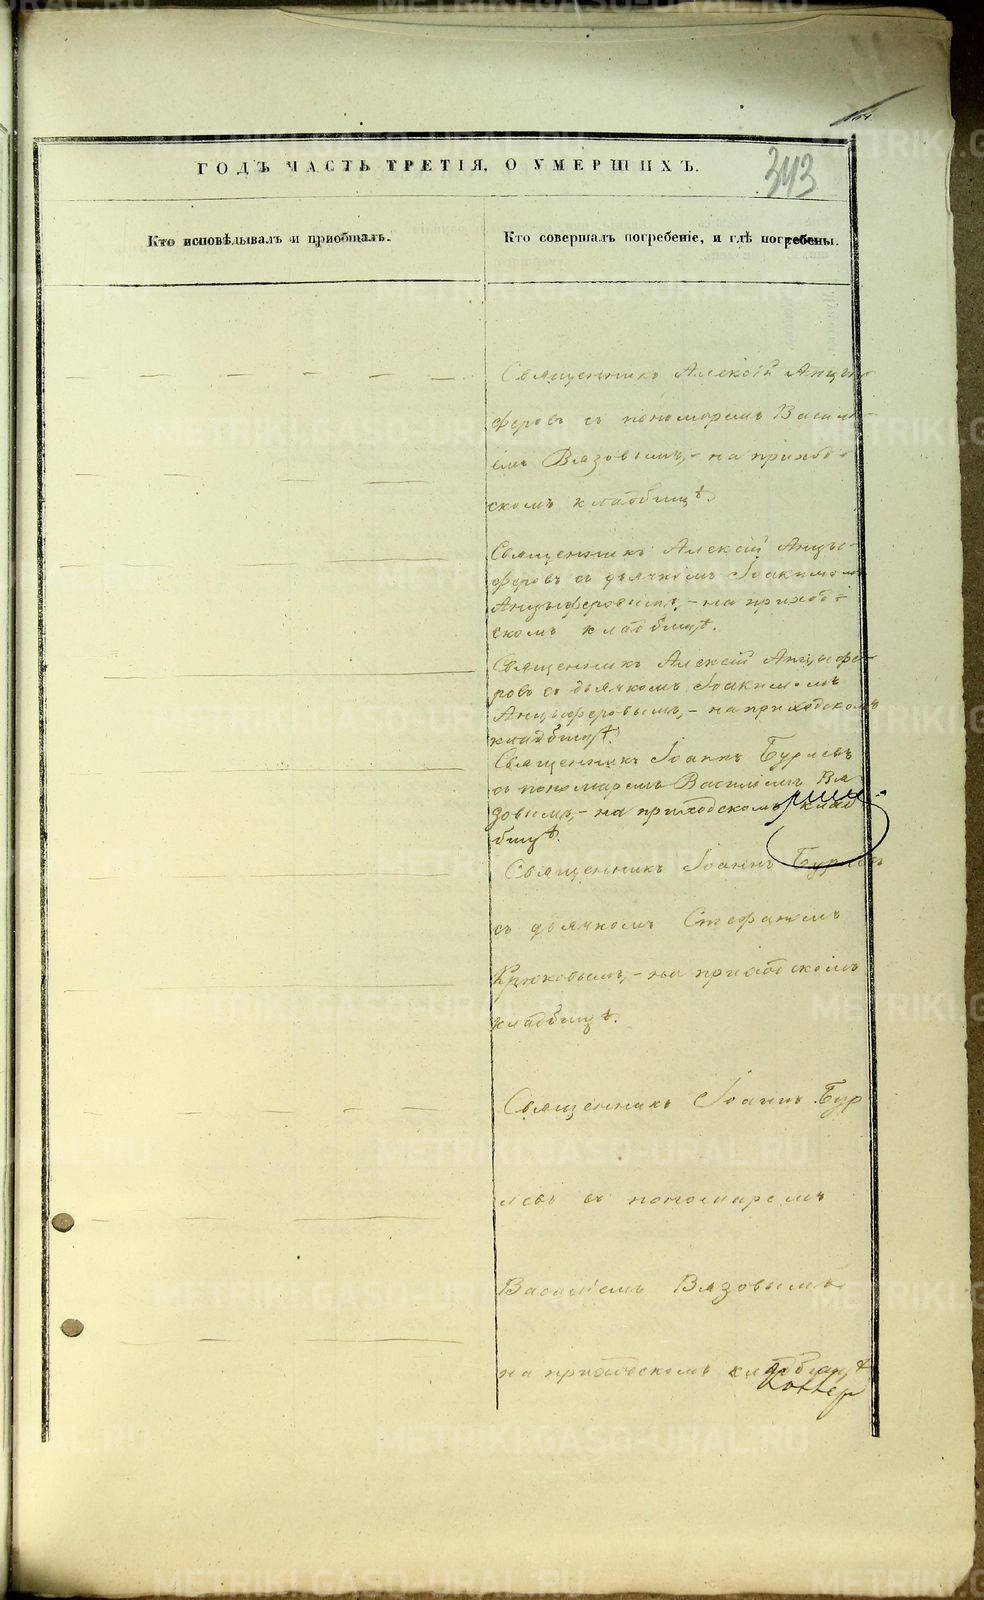 343
ГОДЪ ЧАСТЬ ТРЕТІЯ, О УМЕРШИХЪ.
Кто исповѣдывалъ и пріобщалъ.
Кто совершалъ погребеніе, и гдѣ погребены.
Священникъ Алексій Анцы-
феровъ съ пономаремъ Василі-
емъ Вязовымъ, - на приход-
скомъ кладбищѣ.
Священникъ Алексій Анцы-
феровъ съ дьячкомъ Іоакимомъ
Анцыферовымъ, - на приход-
скомъ кладбищѣ.
Священникъ Алексій Анцыфе-
ровъ съ дьячкомъ Іоакимомъ
Анцыферовымъ, - на приходскомъ
кладбищѣ.
Священникъ Іоаннъ Бурлевъ
съ пономаремъ Василіемъ Вя
зовымъ, - на приходскомъ клад
бищѣ.
Священникъ Іоаннъ Бурлевъ
съ дьячкомъ Стефаномъ
Крюковымъ, - на приходскомъ
кладбищѣ.
Священникъ Іоаннъ Бур
левъ съ пономаремъ
Василіемъ Вязовымъ
на приходскомъ кладбищѣ
METRIKI.GASO-URAL.RU